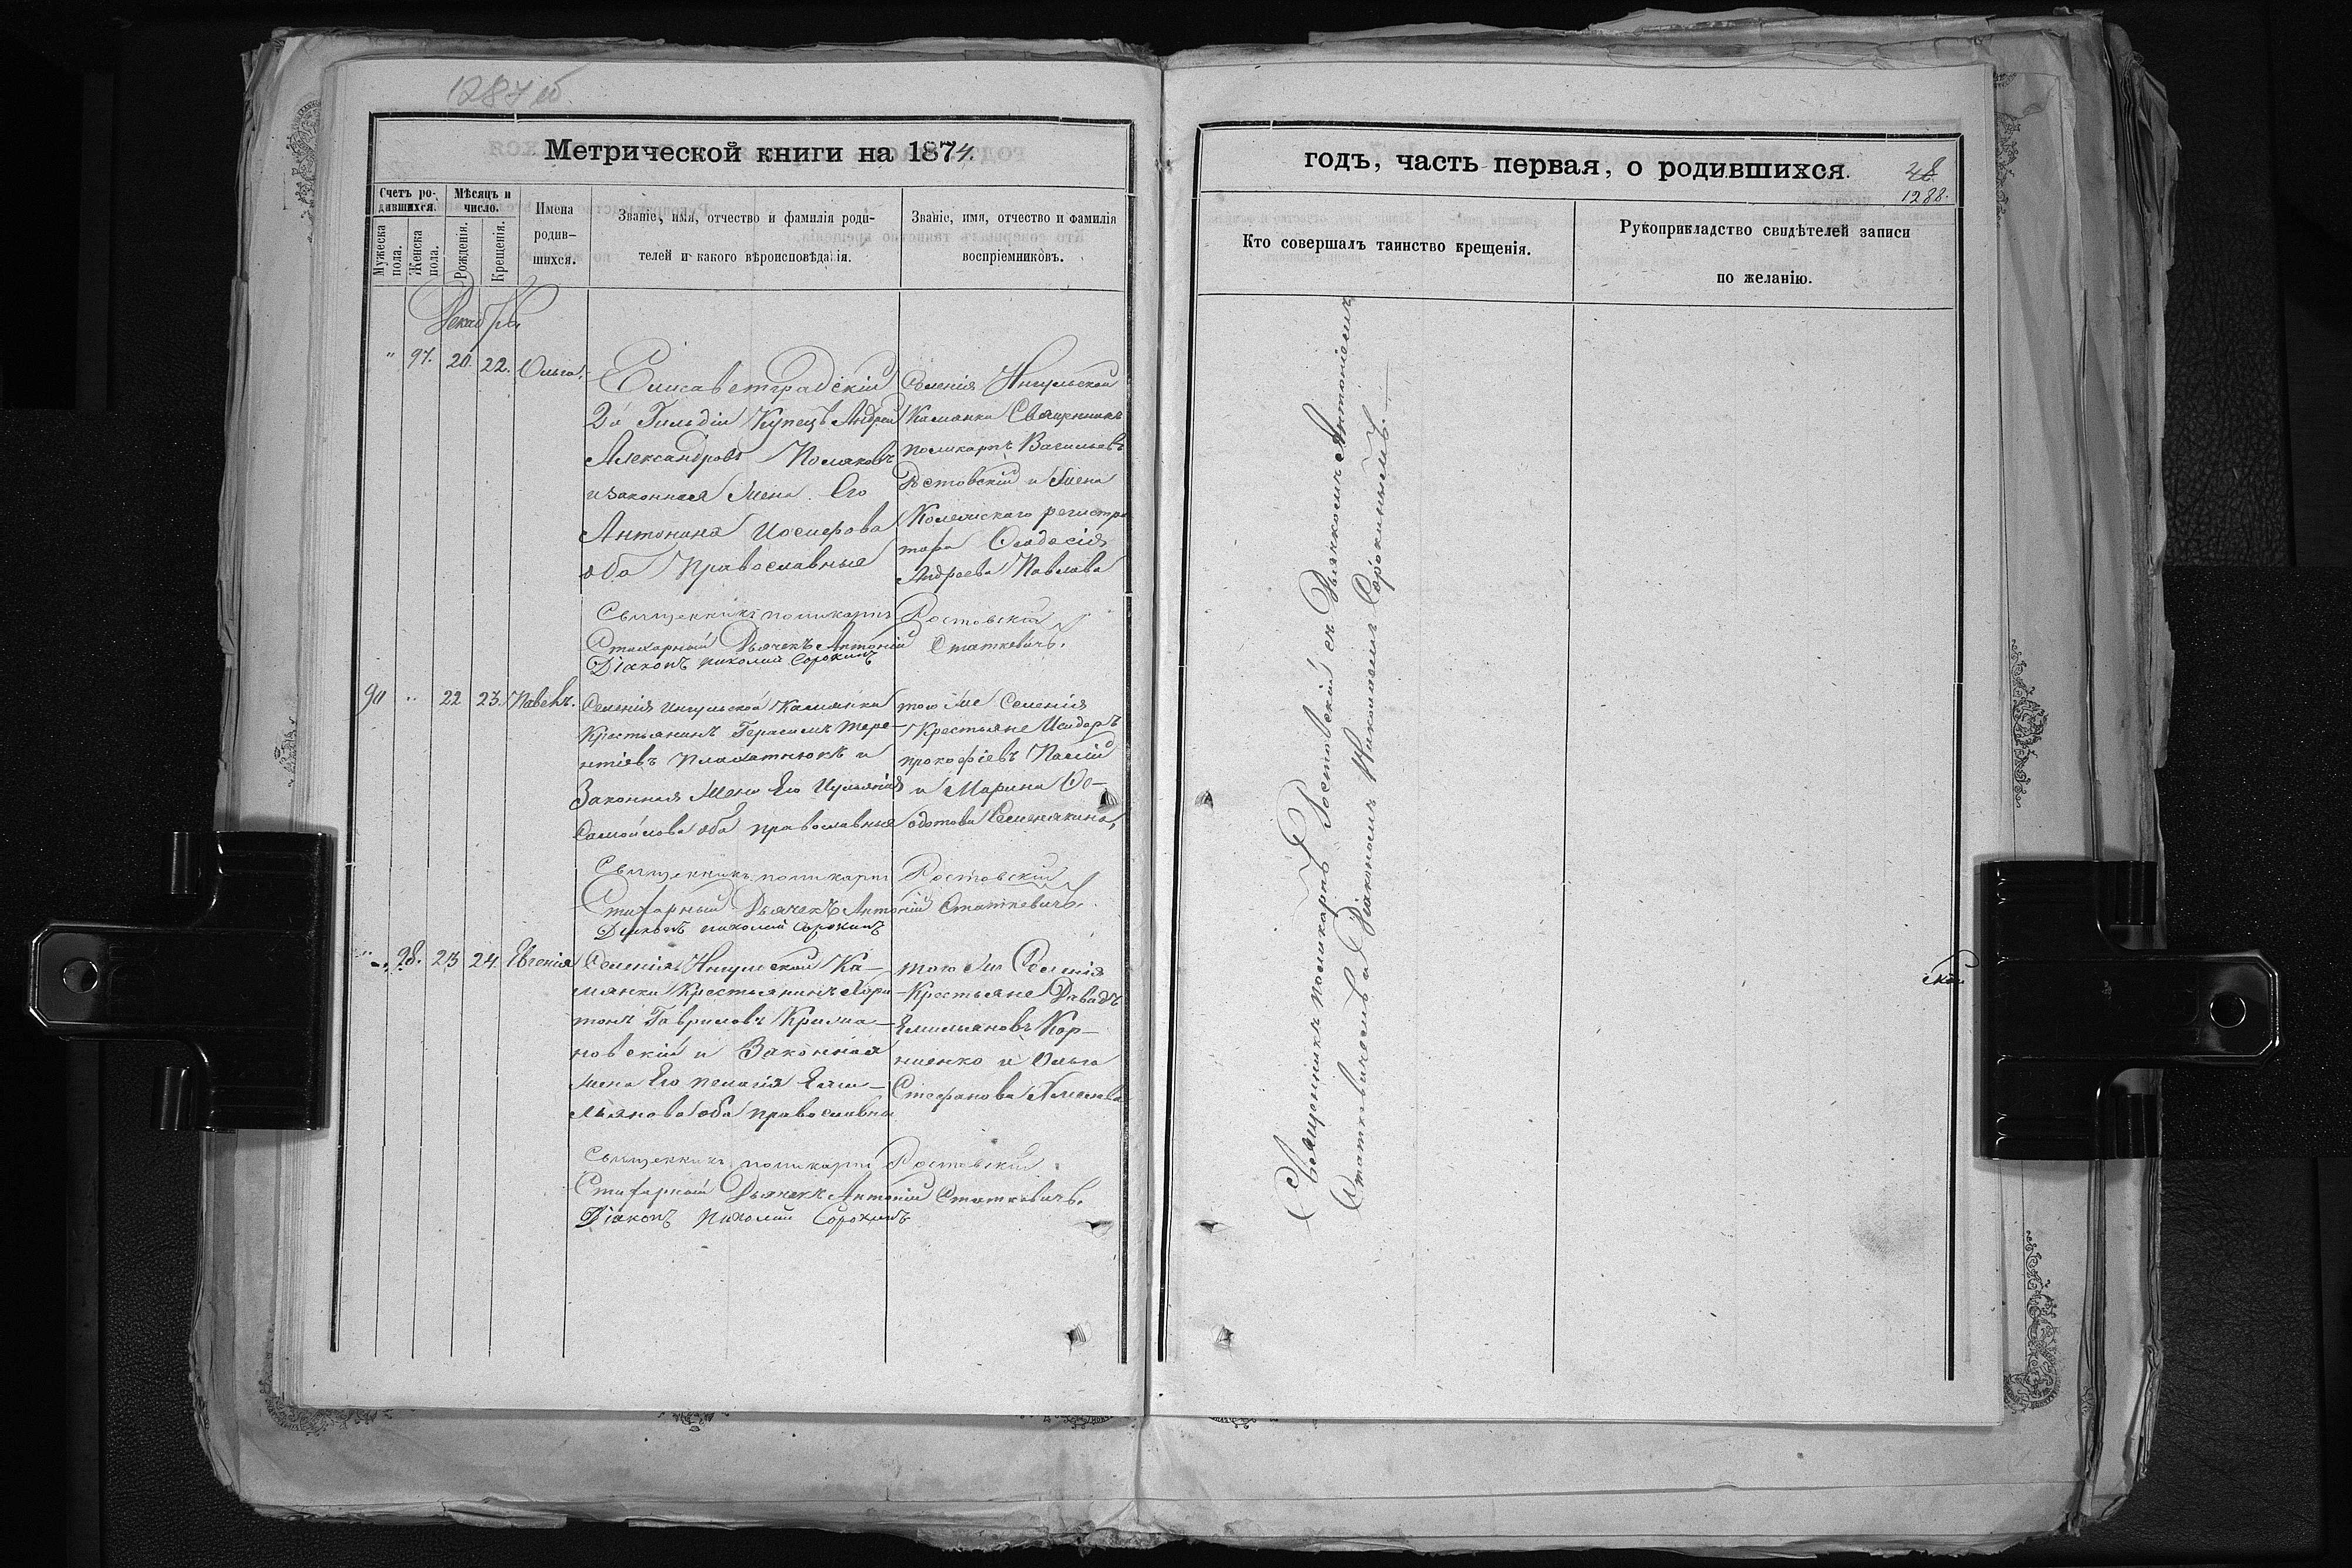 1287 об
Метрической книги на 1874.
Счетъ родившихся.
Мѣсяцъ и число.
Мужеска пола.
Женска пола.
Рожденія.
Крещенія.
Имена родившихся.
Званіе, имя, отчество и фамилія родителей и какого вѣроисповѣданія.
Званіе, имя, отчество и фамилія воспріемниковъ.
Декабрь
" 97. 20. 22. Ольга.
Елисаветградскій
2й Гильдіи Купецъ Андрей
Александровъ Поляковъ
и законная жена Его
Антонина Иосифова
оба Православные
Селенія Ингульской
Камянки Священникъ
поликарпъ Васильевъ
Ростовскій и жена
Колежскаго регистра
тора Феодосія
Андреева Павлова
Священникъ поликарпъ Ростовскій
Стихарный Дьячекъ Антоній Статкевичъ.
Діаконъ николай Сорокинъ
90 " 22 23 Павелъ.
Селенія ингульской Камянки
Крестьянинъ Герасимъ тере-
нтіевъ Плахатнюкъ и
Законная жена Его Иульянія
Самойлова оба православные
того же Селенія
Крестьяне Исидоръ
прокофіевъ Палій
и Марина Фе-
одотова Семенякина,
Священникъ поликарпъ Ростовскій
Стихарный Дьячекъ Антоній Статкевичъ.
Діаконъ николай Сорокинъ
" 98. 23 24 Евгенія
Селенія Ингульской Ка-
мянки Крестьянинъ Хари
тонъ Гавриловъ Крижа-
новскій и Законная
жена Его пелагія Еми-
льянова оба православны
того же Селенія
Крестьяне Давидъ
Емильяновъ Кор-
ниенко и Ольга
Стефанова
Священникъ поликарпъ Ростовскій
Стихарный Дьячекъ Антоній Статкевичъ.
Діаконъ Николай Сорокинъ
годъ, часть первая, о родившихся.
1288.
Кто совершалъ таинство крещенія.
Рукоприкладство свидѣтелей записи
по желанію.
Священникъ поликарпъ Ростовскій съ Дьячкомъ Антоніемъ
Статкевичемъ и Діакономъ Николаемъ Сорокинымъ.